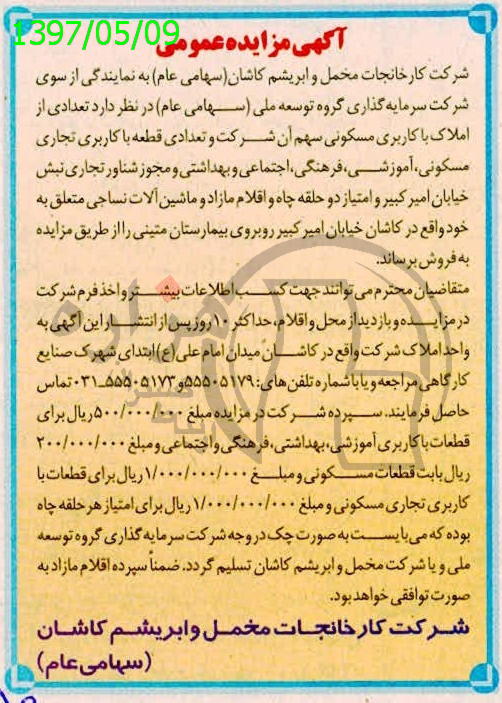 1397/05/09
آگهی مزایده عمومی
شرکت کارخانجات مخمل و ابریشم کاشان(سهامی عام) به نمایندگی از سوی
شرکت سرمایه گذاری گروه توسعه ملی (سهامی عام) در نظر دارد تعدادی از
املاک با کاربری مسکونی سهم آن شرکت و تعدادی قطعه با کاربری تجاری
مسکونی، آموزشی، فرهنگی، اجتماعی و بهداشتی و مجوز شناور تجاری نبش
خیابان امیر کبیر و امتیاز دو حلقه چاه و اقلام مازاد و ماشین آلات نساجی متعلق به
خود واقع در کاشان خیابان امیر کبیر روبروی بیمارستان متینی را از طریق مزایده
به فروش برساند.
متقاضیان محترم می توانند جهت کسب اطلاعات بیشتر و اخذ فرم شرکت
در مزایده و بازدید از محل و اقلام، حداکثر ۱۰ روز پس از انتشار این آگهی به
واحد املاک شرکت واقع در کاشان میدان امام علی(ع) ابتدای شهرک صنایع
کارگاهی مراجعه و یا با شماره تلفن های: ۵۵۵۰۵۱۷۹ و ۵۵۵۰۵۱۷۳-۰۳۱ تماس
حاصل فرمایند. سپرده شرکت در مزایده مبلغ ۵۰۰/۰۰۰/۰۰۰ ریال برای
قطعات با کاربری آموزشی، بهداشتی، فرهنگی و اجتماعی و مبلغ ۲۰۰/۰۰۰/۰۰۰
ریال بابت قطعات مسکونی و مبلغ ۱/۰۰۰/۰۰۰/۰۰۰ ریال برای قطعات با
کاربری تجاری مسکونی و مبلغ ۱/۰۰۰/۰۰۰/۰۰۰ ریال برای امتیاز هر حلقه چاه
بوده که می بایست به صورت چک در وجه شرکت سرمایه گذاری گروه توسعه
ملی و یا شرکت مخمل و ابریشم کاشان تسلیم گردد. ضمناً سپرده اقلام مازاد به
صورت توافقی خواهد بود.
شرکت کارخانجات مخمل و ابریشم کاشان
(سهامی عام)